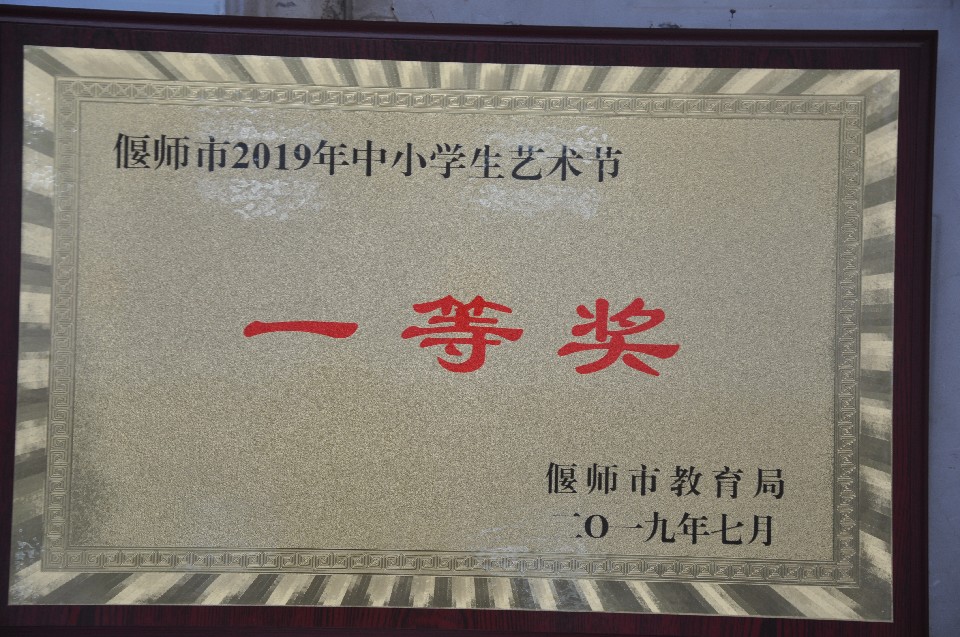 偃师市2019年中小学生艺术节
一等奖
偃师市教育局
二O一九年七月